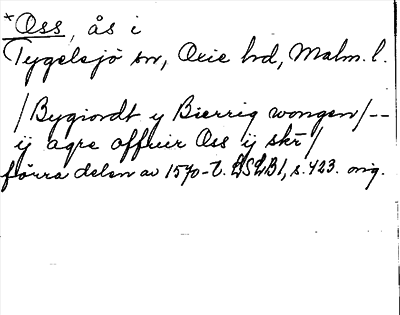 *Oss, ås i
Tygelsjö sn, Oxie hd, Malm. l.
/Bygiordt y Bierrig wongen/--
ij agre offuer Oss ij skr/
förra delen av 1570-t. LSLB1, s. 423. orig.